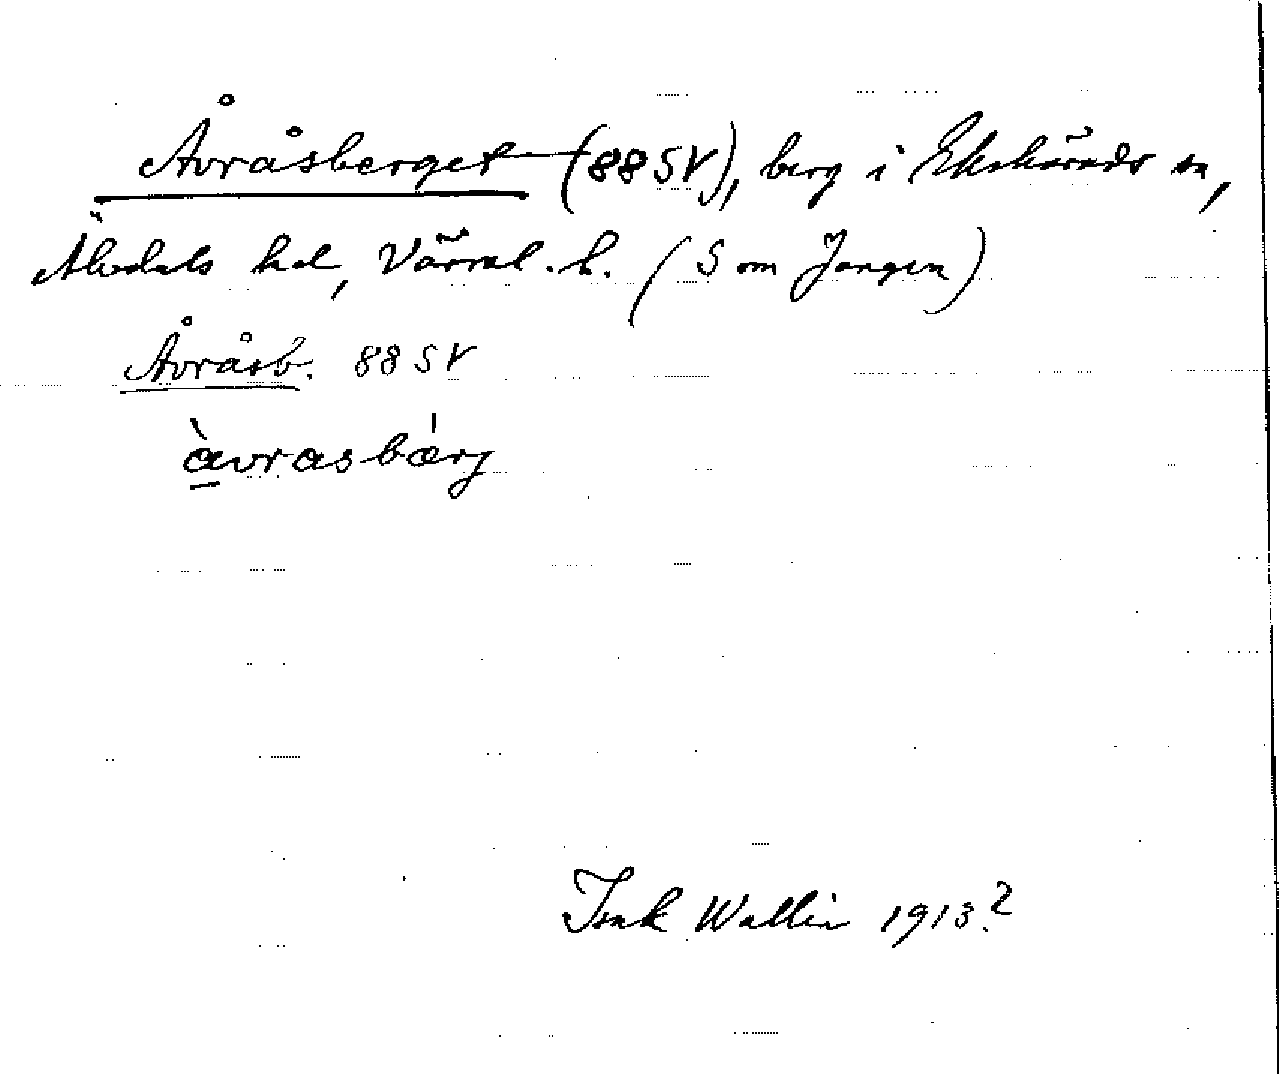 Åvråsberget (88SV), berg i Ekshärads sn,
Älvdals hd, Värml. l. (S om Jangen)
Åvråsb. 88 SV
àvrasbǽrj
Isak Wallin 1913?